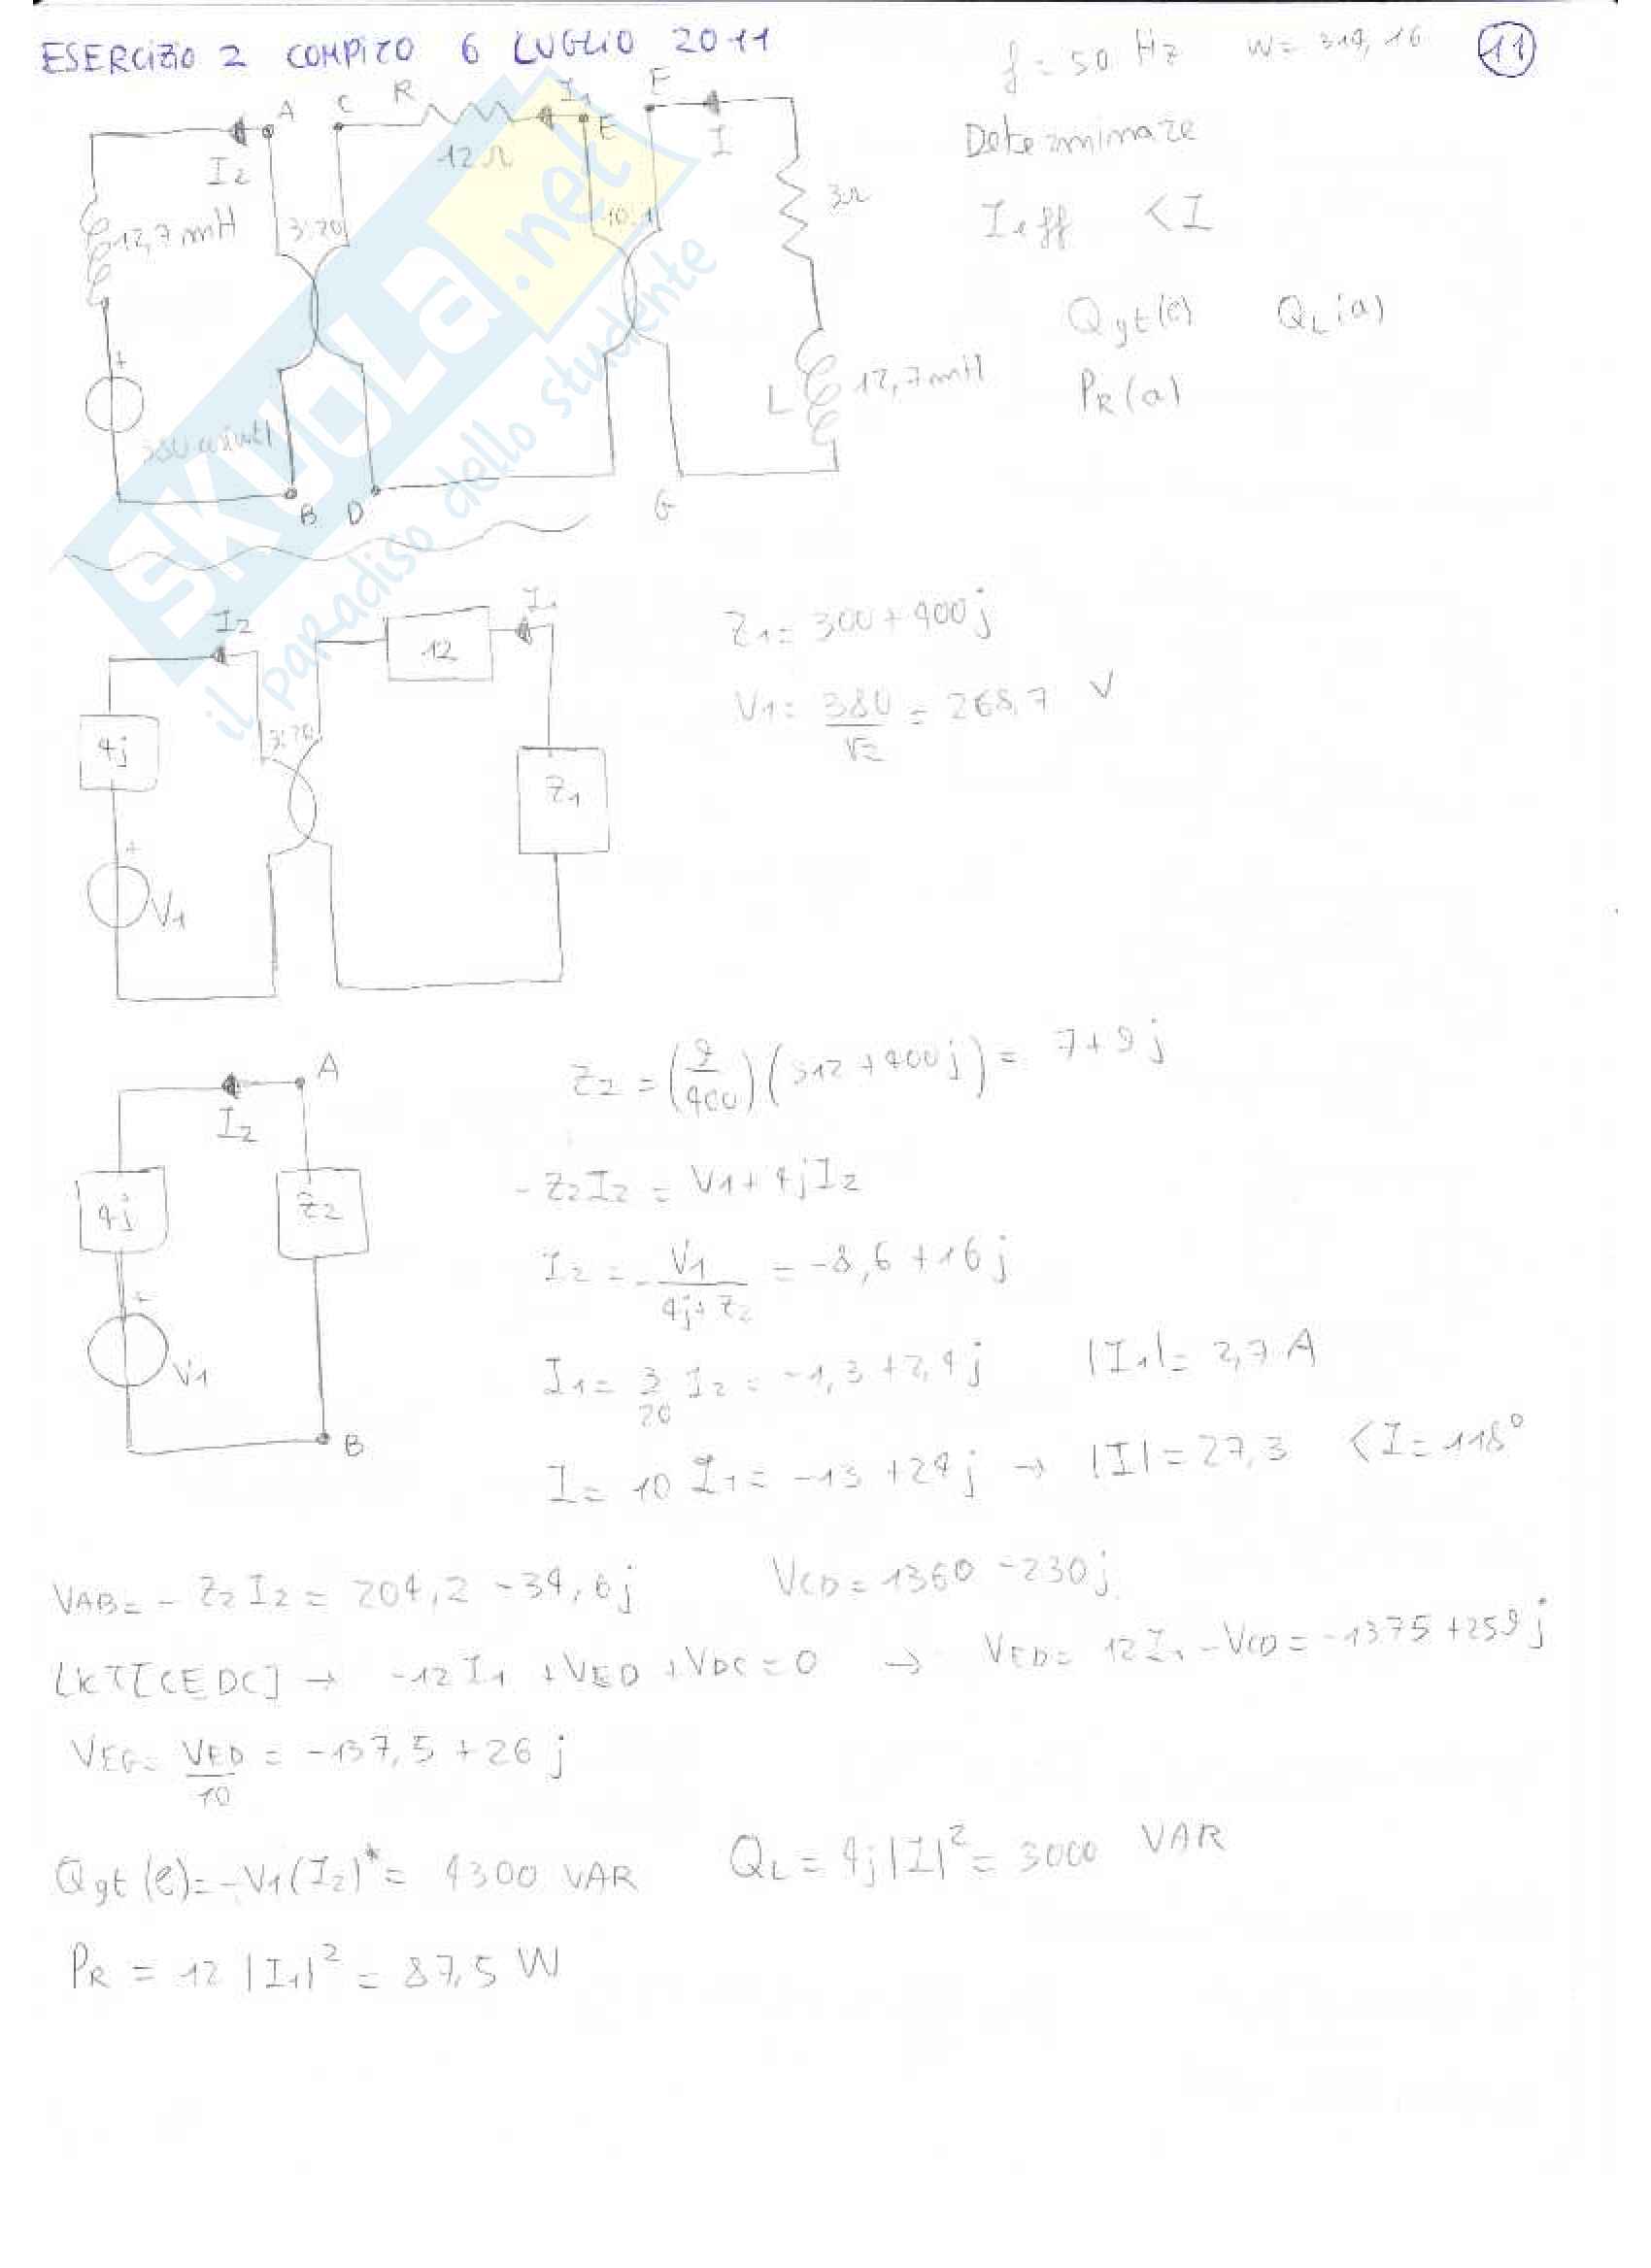 ESERCIZIO 2 COMPITO 6 LUGLIO 2011
f = 50 Hz W = 314,16
11
A C R I1 E F
I2 12 Ω I
Determinare
12,7 mH 3:20 10:1 3Ω
Ieff <I
Qgt(e) QL(a)
+ L 12,7 mH
PR(a)
B D G
SKUOLA.net
il paradiso dello studente
I2 12 I1
Z1 = 300 + 400j
V1 = 380/√2 = 268,7 V
4j 3:20 Z1
+ V1
A
Z2 = (9/400) (312 + 400j) = 7 + 9j
I2
4j Z2
- Z2I2 = V1 + 4jI2
+ V1
I2 = - V1/(4j + Z2) = -8,6 + 16j
I1 = 3/20 I2 = -1,3 + 2,4j |I1| = 2,7 A
B
I = 10 I1 = -13 + 24j → |I| = 27,3 <I = 118°
VAB = - Z2I2 = 204,2 - 34,6j VCD = 1360 - 230j
LKT[CEDC] → -12I1 + VED + VDC = 0 → VED = 12I1 - VCD = -1375 + 259j
VEG = VED/10 = -137,5 + 26j
Qgt(e) = -V1(I2)* = 4300 VAR QL = 4j|I|² = 3000 VAR
PR = 12 |I1|² = 87,5 W